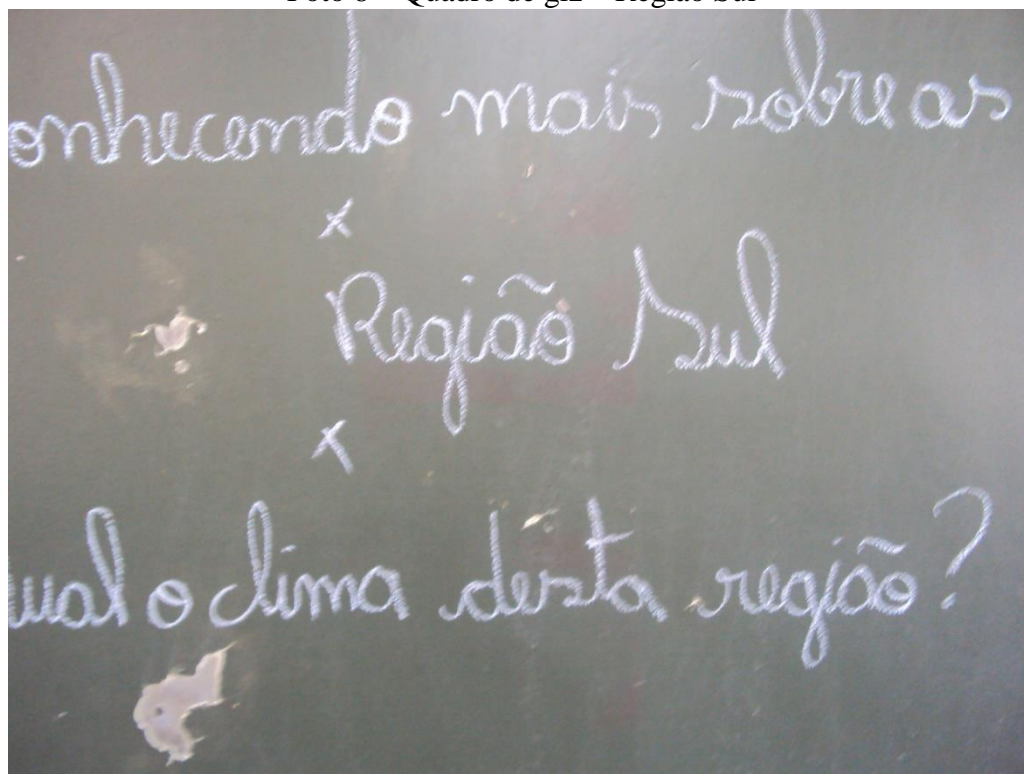 onhecendo mais sobre as
x
Região Sul
x
ual o clima desta região?